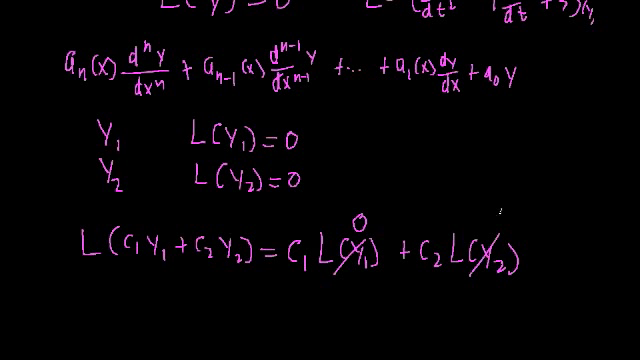 L(y) = 0
aₙ(x) dⁿy/dxⁿ + aₙ₋₁(x) dⁿ⁻¹y/dxⁿ⁻¹ + ... + a₁(x) dy/dx + a₀ y
Y₁ L(Y₁) = 0
Y₂ L(Y₂) = 0
0
L(C₁Y₁ + C₂Y₂) = C₁ L(Y₁) + C₂ L(Y₂)